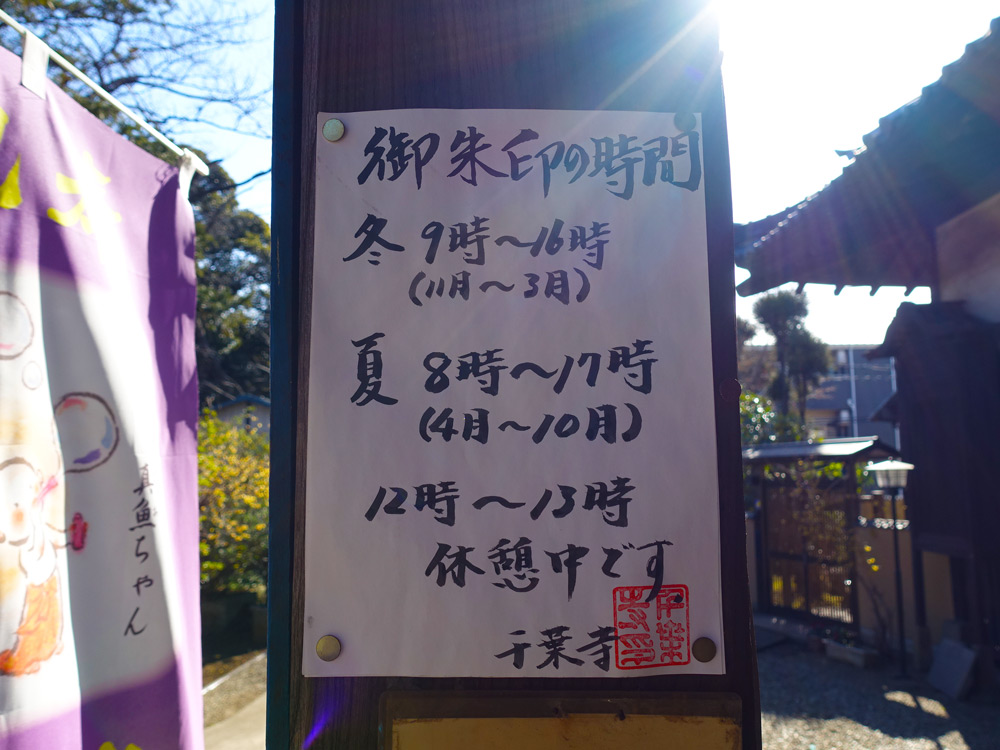 御朱印の時間
冬 9時～16時
(11月～3月)
夏 8時～17時
(4月～10月)
12時～13時
休憩中です.
千葉寺
真魚ちゃん